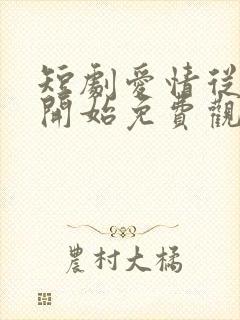 短劇愛情從
開始免費觀
農村大橘